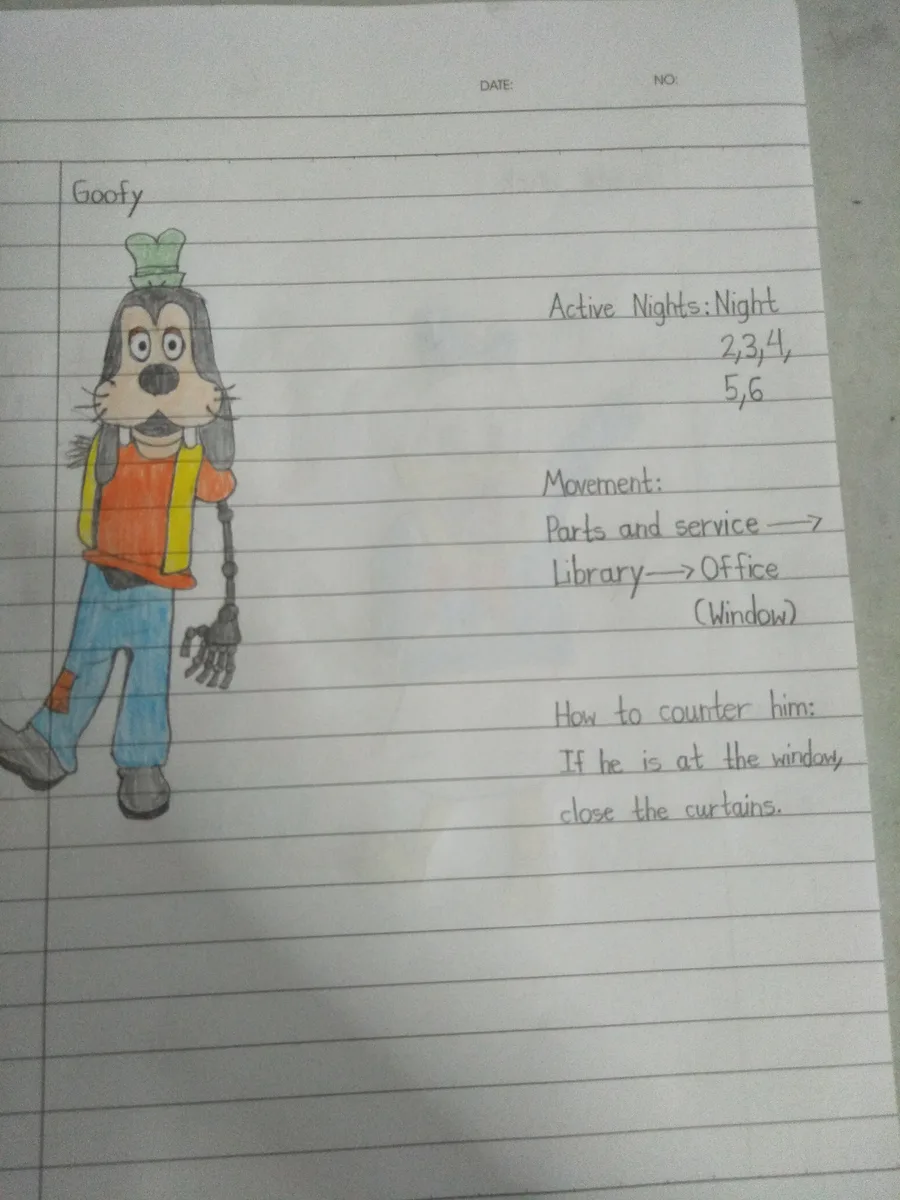 DATE: NO:
Goofy
Active Nights: Night
2,3,4,
5,6
Movement:
Parts and service →
Library → Office
(Window)
How to counter him:
If he is at the window,
close the curtains.